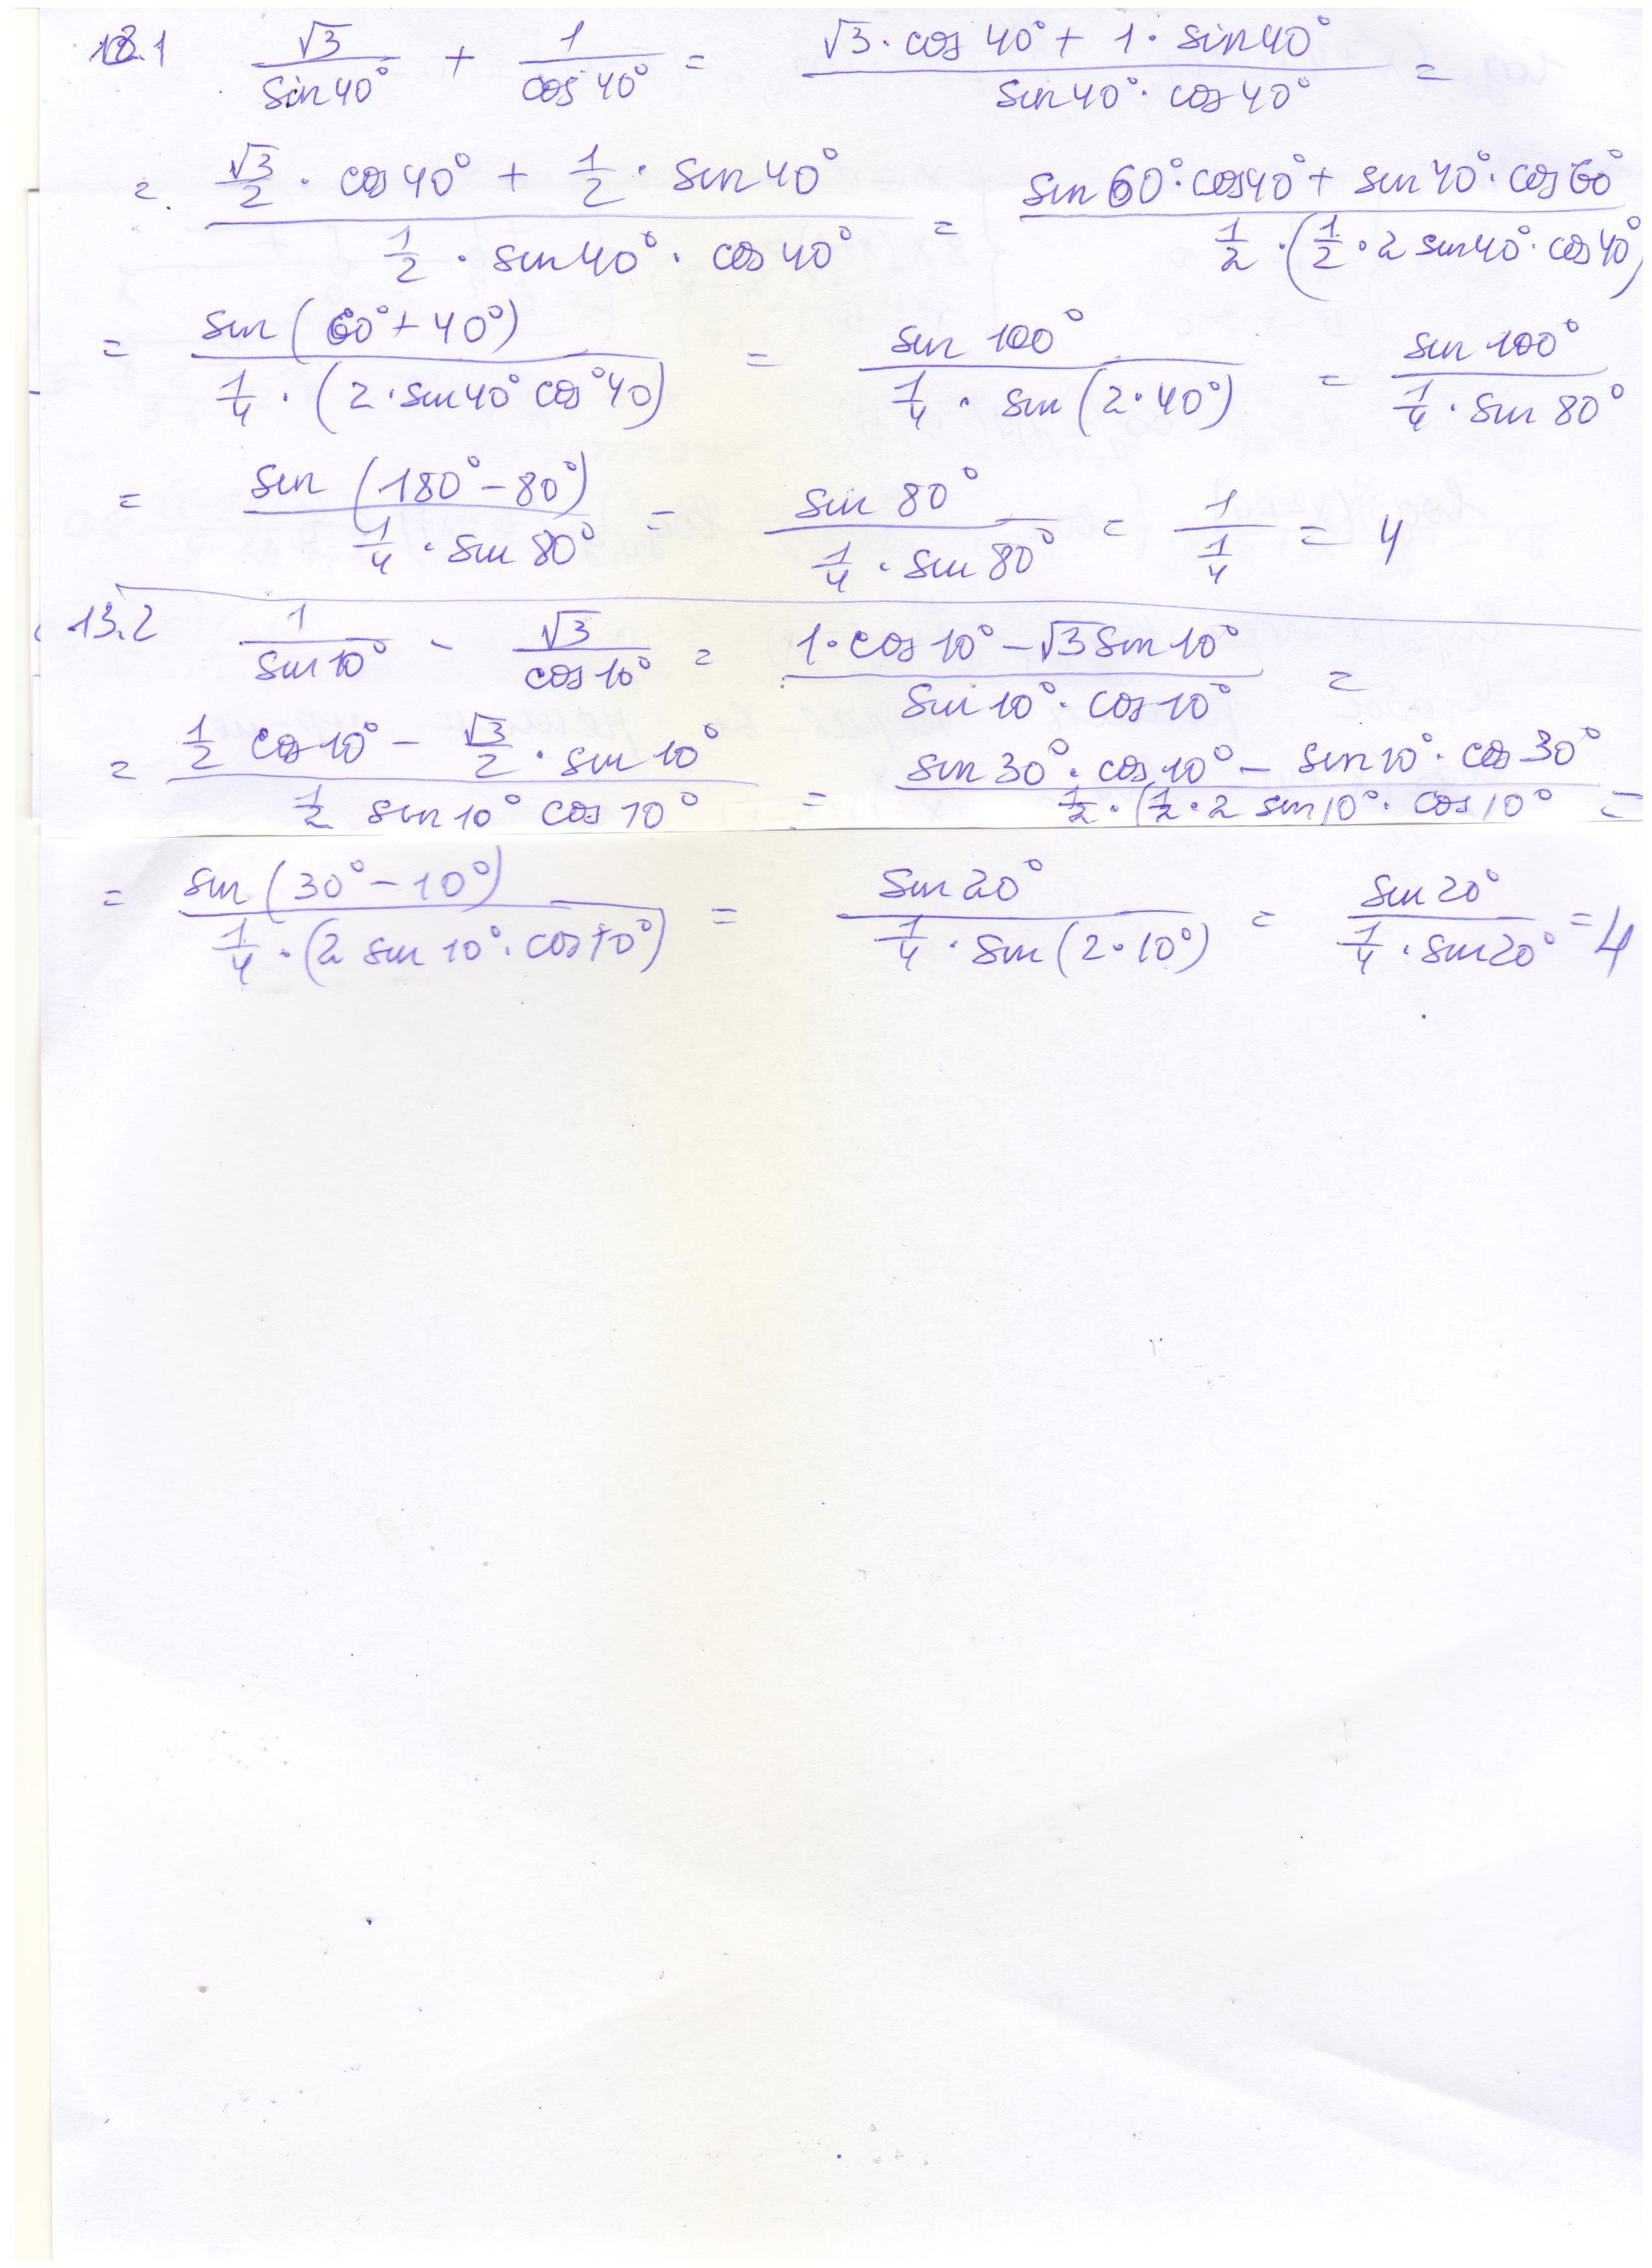 13.1 √3/sin40° + 1/cos40° = (√3·cos40° + 1·sin40°)/(sin40°·cos40°) =
= (√3/2·cos40° + 1/2·sin40°)/(1/2·sin40°·cos40°) = (sin60°·cos40° + sin40°·cos60°)/(1/2·(1/2·2sin40°·cos40°)
= sin(60°+40°)/(1/4·(2·sin40°cos°40)) = sin100°/(1/4·sin(2·40°)) = sin100°/(1/4·sin80°)
= sin(180°-80°)/(1/4·sin80°) = sin80°/(1/4·sin80°) = 1/(1/4) = 4
13.2 1/sin10° - √3/cos10° = (1·cos10° - √3sin10°)/(sin10°·cos10°) =
= (1/2cos10° - √3/2·sin10°)/(1/2 sin10°cos10°) = (sin30°·cos10° - sin10°·cos30°)/(1/2·(1/2·2sin10°·cos10°) =
= sin(30°-10°)/(1/4·(2sin10°·cos10°)) = sin20°/(1/4·sin(2·10°)) = sin20°/(1/4·sin20°) = 4